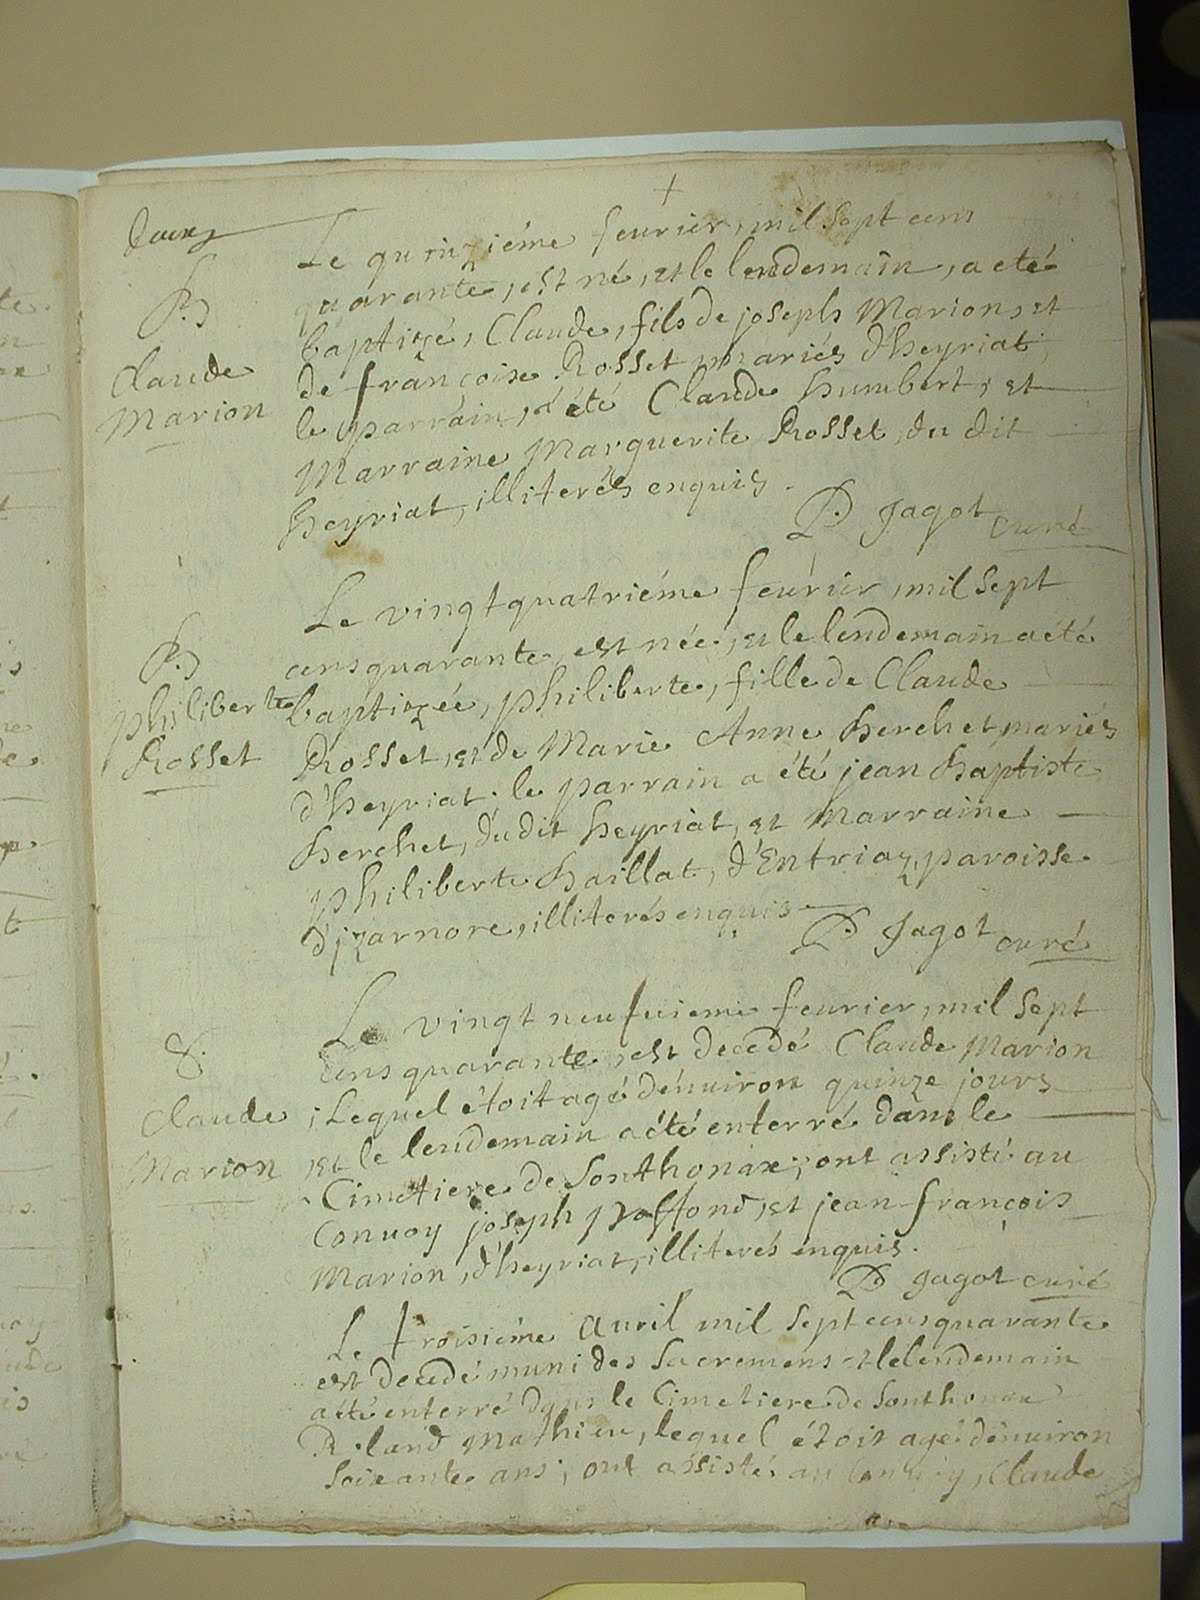 Douze
B.
Claude
Marion
Le quinziéme feurier, mil sept cens
quarante, est né, et le lendemain, a eté
baptizé, Claude, fils de joseph Marion, et
de françoise Rosset mariés d'heyriat,
le parrain, a été Claude humbert, et
Marraine Marguerite Rosset, du dit
heyriat, illiterés enquis.
D. Jagot curé
B.
philiberte
Rosset
Le vingtquatriéme feurier, mil sept
cens quarante, est née, et le lendemain a été
baptizée, philiberte, fille de Claude
Rosset, et de Marie Anne herchet, mariés
d'heyriat; le parrain a été jean baptiste
herchet, du dit heyriat, et Marraine
philiberte baillat, d'Entriaz, paroisse
d'jzarnore, illiterés enquis
D. Jagot curé
S.
Claude
Marion
Le vingt neufuieme feurier, mil sept
cens quarante, est decedé Claude Marion
; Lequel étoit agé d'enuiron quinze jours
, et le lendemain a été enterré dans le
Cimetiere de Sonthonax; ont assisté au
Conuoy joseph poffond, et jean françois
Marion, d'heyriat, illiterés enquis.
D. Jagot curé
Le troisiéme auril mil sept cens quarante
est decedé muni des sacremens et le lendemain
a été enterré dans le Cimetiere de Sonthonax
Roland Mathieu, lequel étoit agé d'enuiron
soixante ans; ont assisté au Conuoy, Claude